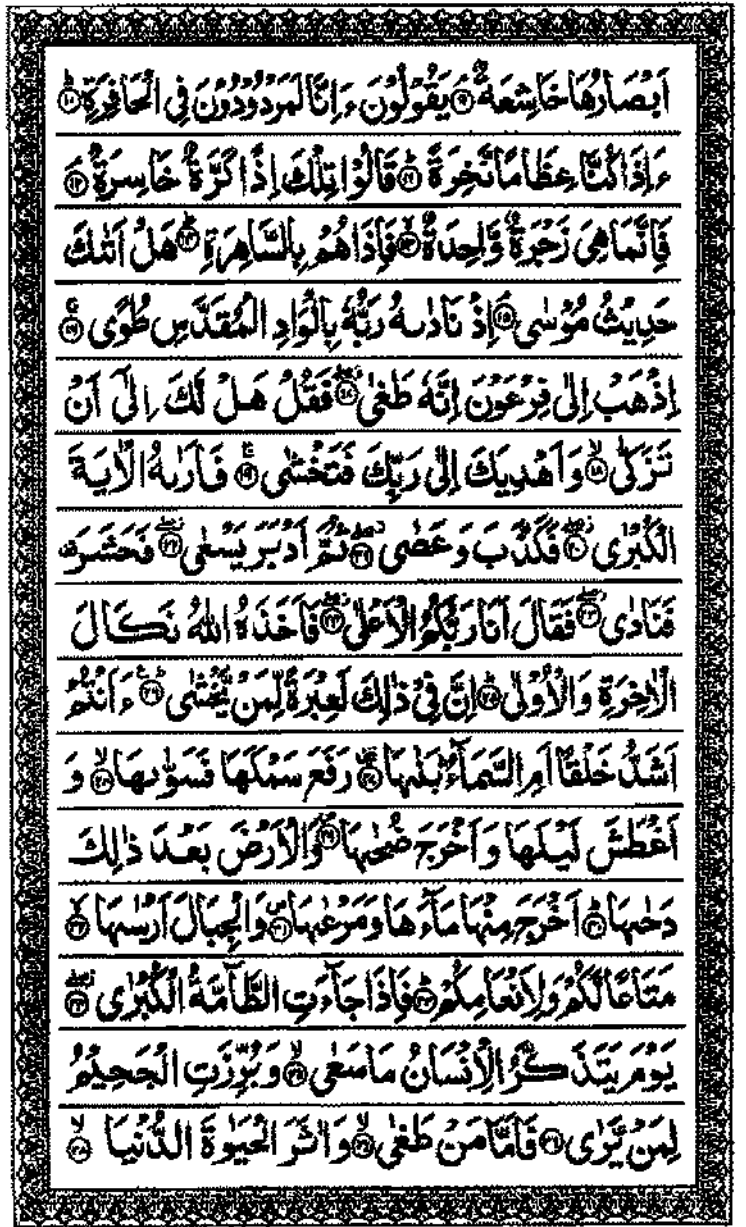 اَبْصَارُهَا خَاشِعَةٌ ۘ۝۹ يَقُوْلُوْنَ ءَاِنَّا لَمَرْدُوْدُوْنَ فِي الْحَافِرَةِ ؕ۝۱۰
ءَاِذَا كُنَّا عِظَامًا نَّخِرَةً ؕ۝۱۱ قَالُوْا تِلْكَ اِذًا كَرَّةٌ خَاسِرَةٌ ۘ۝۱۲
فَاِنَّمَا هِيَ زَجْرَةٌ وَّاحِدَةٌ ۙ۝۱۳ فَاِذَا هُمْ بِالسَّاهِرَةِ ؕ۝۱۴ هَلْ اَتٰىكَ
حَدِيْثُ مُوْسٰى ۘ۝۱۵ اِذْ نَادٰىهُ رَبُّهٗ بِالْوَادِ الْمُقَدَّسِ طُوًى ۚ۝۱۶
اِذْهَبْ اِلٰى فِرْعَوْنَ اِنَّهٗ طَغٰى ۖ۝۱۷ فَقُلْ هَلْ لَّكَ اِلٰٓى اَنْ
تَزَكّٰى ۙ۝۱۸ وَاَهْدِيَكَ اِلٰى رَبِّكَ فَتَخْشٰى ۚ۝۱۹ فَاَرٰىهُ الْاٰيَةَ
الْكُبْرٰى ۖ۝۲۰ فَكَذَّبَ وَعَصٰى ۖ۝۲۱ ثُمَّ اَدْبَرَ يَسْعٰى ۖ۝۲۲ فَحَشَرَ
فَنَادٰى ۖ۝۲۳ فَقَالَ اَنَا رَبُّكُمُ الْاَعْلٰى ۖ۝۲۴ فَاَخَذَهُ اللّٰهُ نَكَالَ
الْاٰخِرَةِ وَالْاُوْلٰى ؕ۝۲۵ اِنَّ فِيْ ذٰلِكَ لَعِبْرَةً لِّمَنْ يَّخْشٰى ؕ۝۲۶ ءَاَنْتُمْ
اَشَدُّ خَلْقًا اَمِ السَّمَآءُ ؕ بَنٰىهَا ۥ۝۲۷ رَفَعَ سَمْكَهَا فَسَوّٰىهَا ۙ۝۲۸ وَ
اَغْطَشَ لَيْلَهَا وَاَخْرَجَ ضُحٰىهَا ۪۝۲۹ وَالْاَرْضَ بَعْدَ ذٰلِكَ
دَحٰىهَا ؕ۝۳۰ اَخْرَجَ مِنْهَا مَآءَهَا وَمَرْعٰىهَا ۪۝۳۱ وَالْجِبَالَ اَرْسٰىهَا ۙ۝۳۲
مَتَاعًا لَّكُمْ وَلِاَنْعَامِكُمْ ؕ۝۳۳ فَاِذَا جَآءَتِ الطَّآمَّةُ الْكُبْرٰى ۖ۝۳۴
يَوْمَ يَتَذَكَّرُ الْاِنْسَانُ مَا سَعٰى ۙ۝۳۵ وَبُرِّزَتِ الْجَحِيْمُ
لِمَنْ يَّرٰى ۝۳۶ فَاَمَّا مَنْ طَغٰى ۙ۝۳۷ وَاٰثَرَ الْحَيٰوةَ الدُّنْيَا ۙ۝۳۸